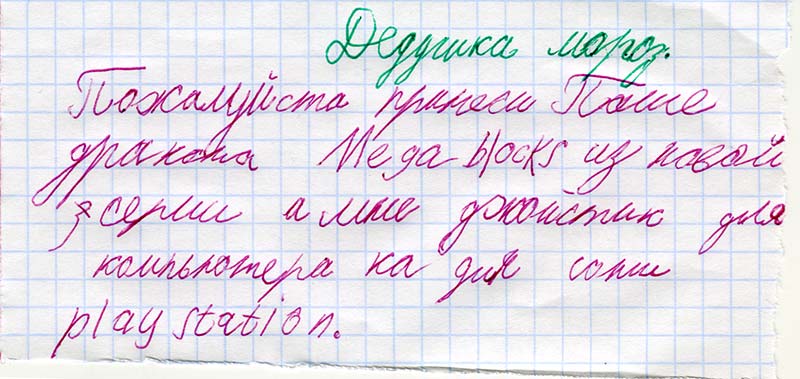 Дедушка мороз.
Пожалуйста принеси Паше
дракона Mega blocks из новой
серии а мне джойстик для
компьютера ка для сони
play station.